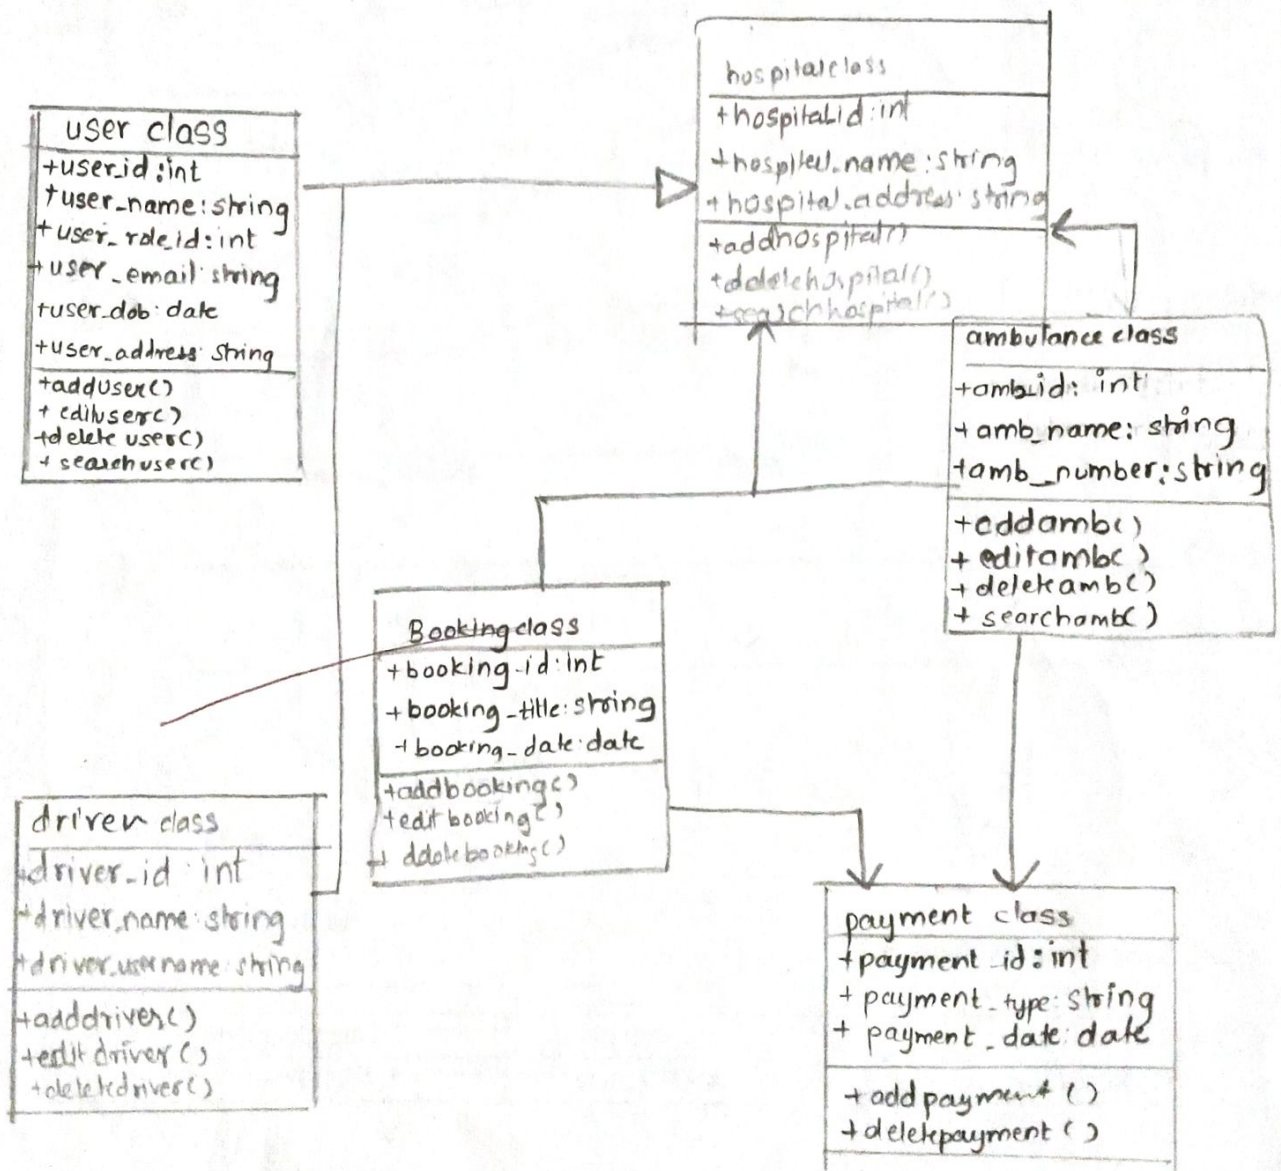 user class
+user_id:int
+user_name:string
+user_role_id:int
+user_email:string
+user_dob:date
+user_address:string
+adduser()
+edituser()
+deleteuser()
+searchuser()
hospitalclass
+hospital_id:int
+hospital_name:string
+hospital_address:string
+addhospital()
+deletehospital()
+searchhospital()
ambulance class
+amb_id: int
+amb_name: string
+amb_number:string
+addamb()
+editamb()
+deleteamb()
+searchamb()
Booking class
+booking_id:int
+booking_title:string
+booking_date:date
+addbooking()
+editbooking()
+deletebooking()
driver class
+driver_id: int
+driver_name:string
+driver_username:string
+adddriver()
+editdriver()
+deletedriver()
payment class
+payment_id:int
+payment_type:string
+payment_date:date
+addpayment()
+deletepayment()